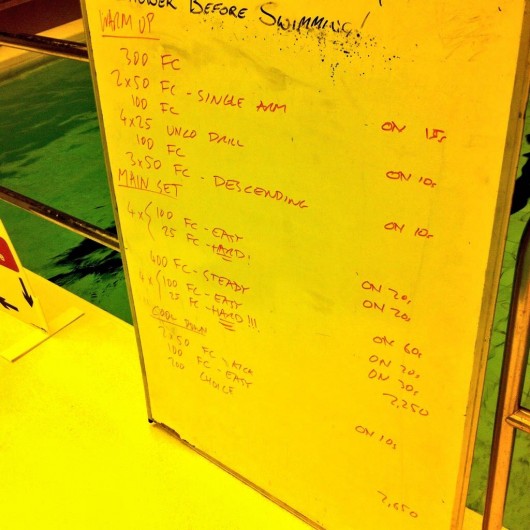 SHOWER BEFORE SWIMMING!
WARM UP
300 FC
2x50 FC - SINGLE ARM ON 15s
100 FC
4x25 UNCO DRILL ON 10s
100 FC
3x50 FC - DESCENDING ON 10s
MAIN SET
4x{100 FC - EASY ON 20s
25 FC - HARD! ON 20s
400 FC - STEADY ON 60s
4x{100 FC - EASY ON 20s
25 FC - HARD!!! ON 30s
2,250
COOL DOWN
2x50 FC CATCH ON 10s
100 FC - EASY
200 CHOICE
2,650